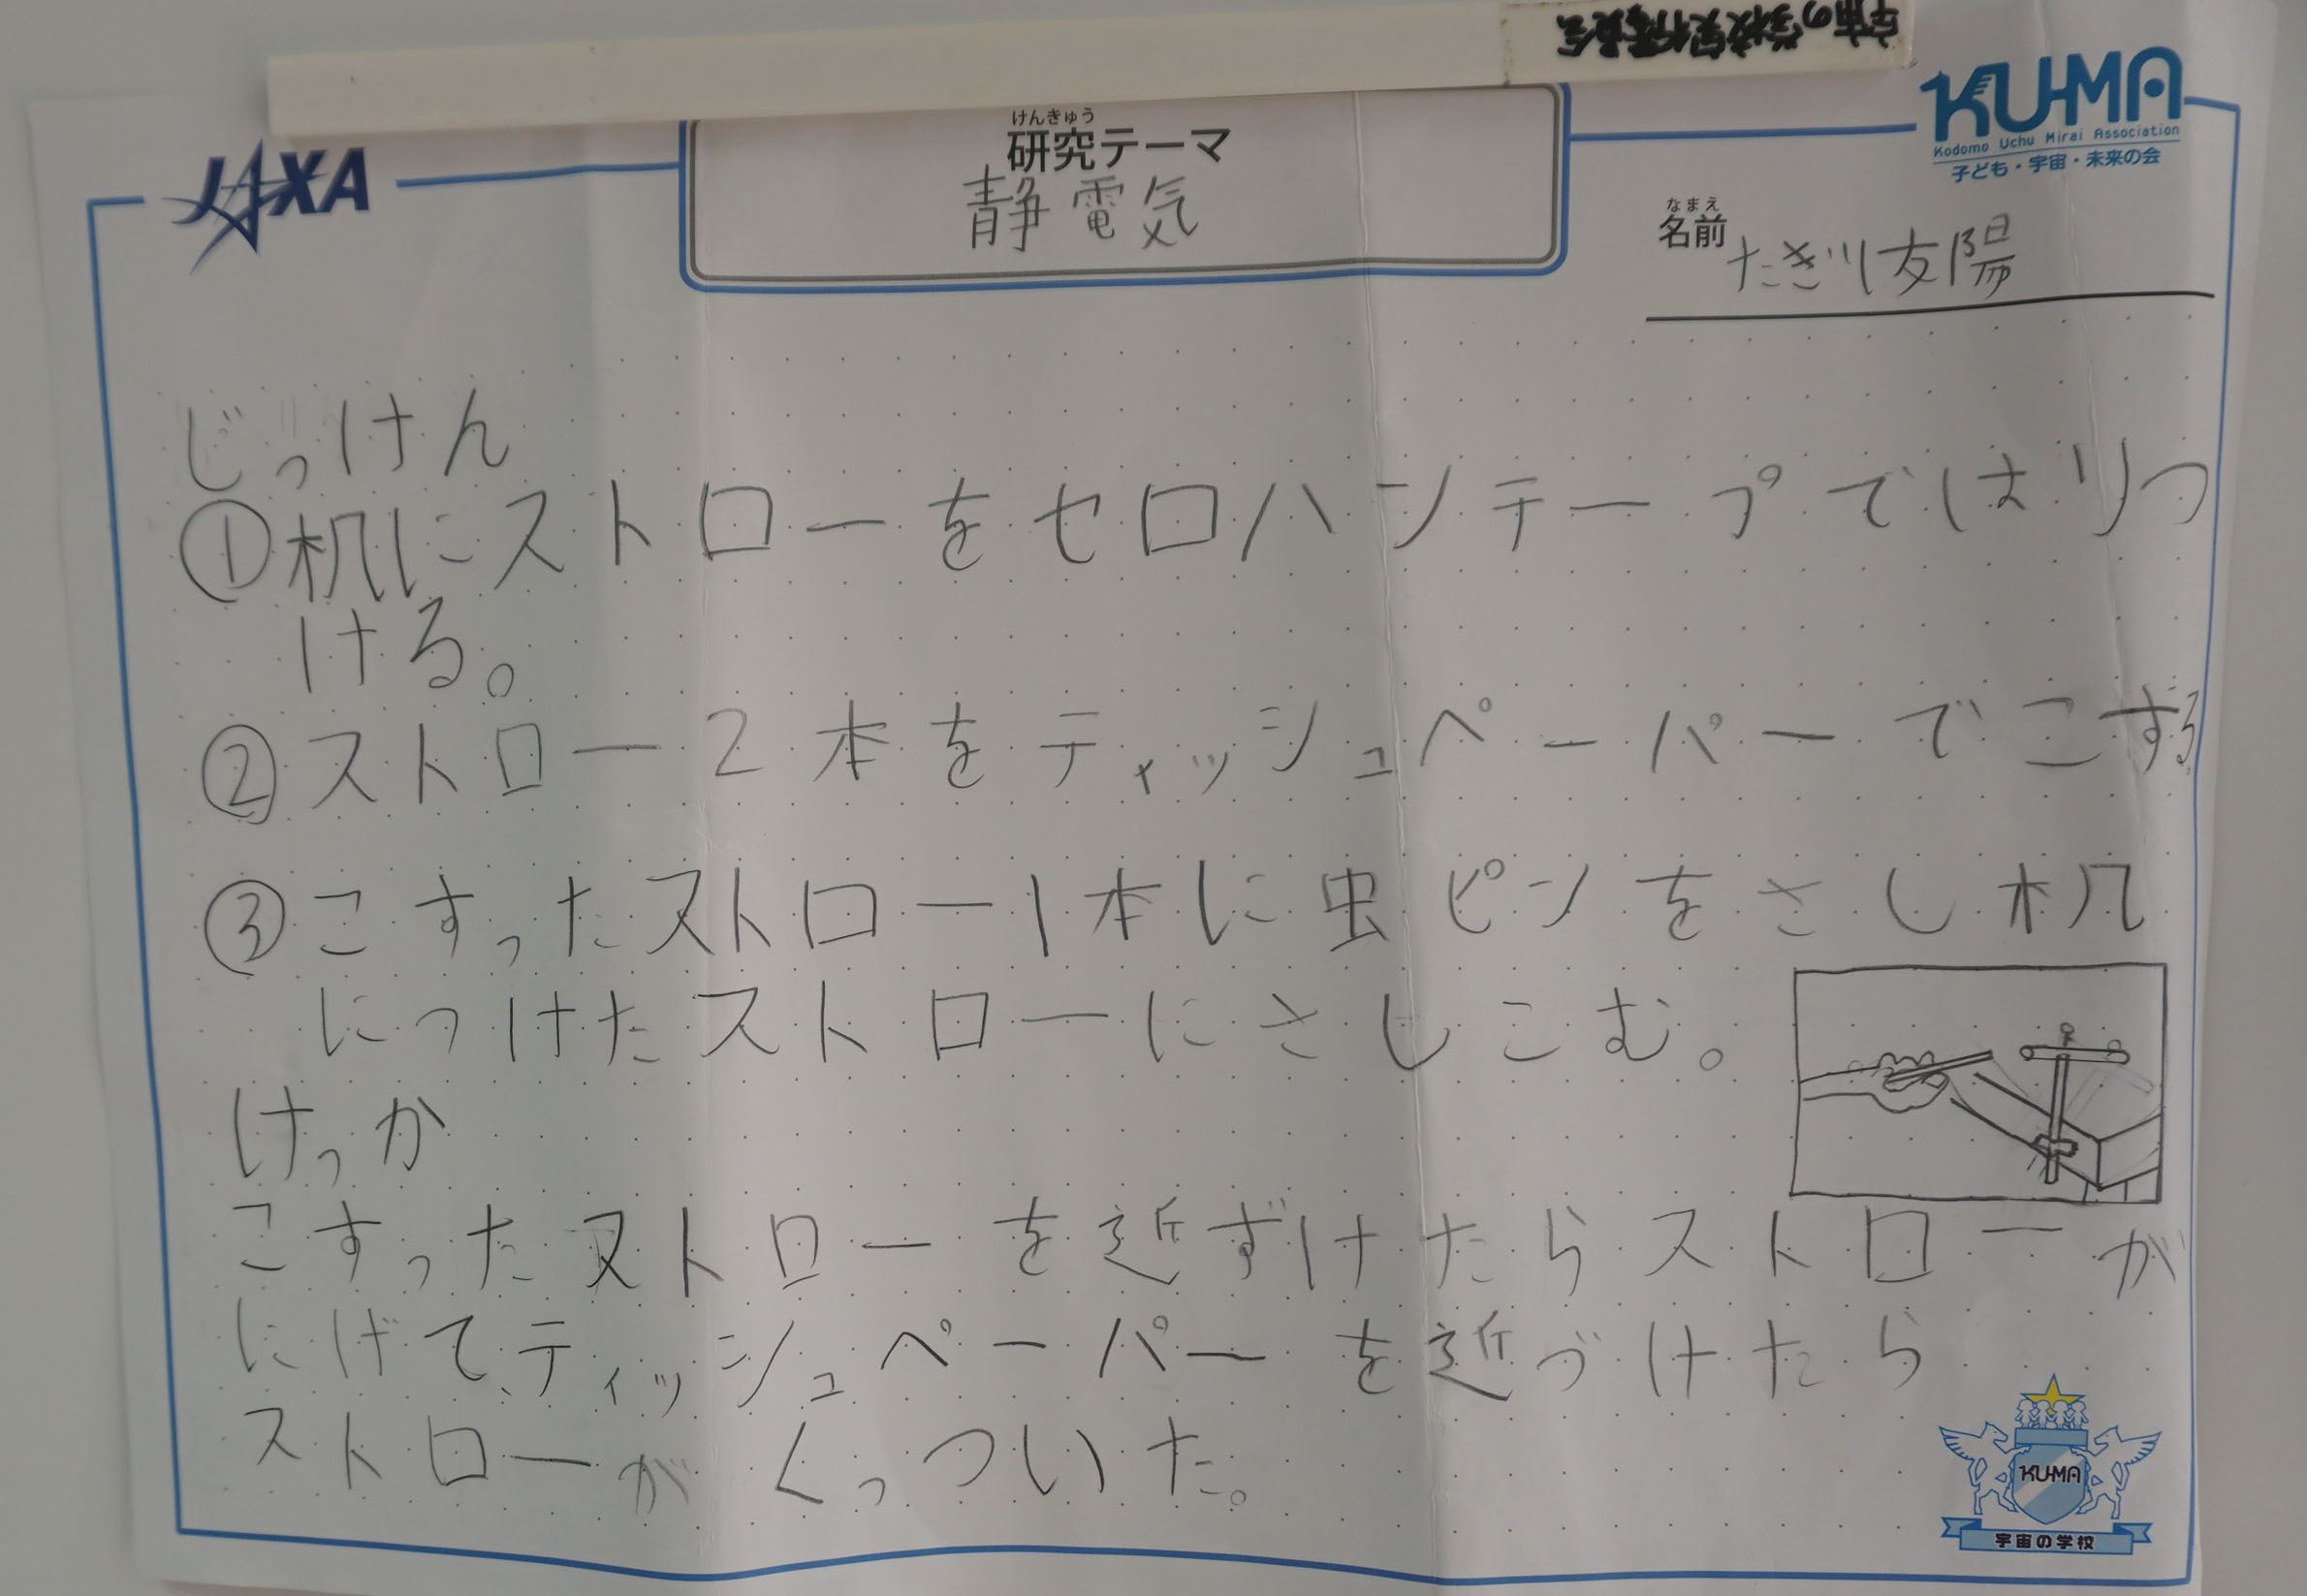 宇宙の学校実行委員会
JAXA
けんきゅう
研究テーマ
静電気
KU-MA
Kodomo Uchu Mirai Association
子ども・宇宙・未来の会
なまえ
名前 たきい友陽
じっけん
①机にストローをセロハンテープではりつ
ける。
②ストロー2本をティッシュペーパーでこする
③こすったストロー1本に虫ピンをさし机
につけたストローにさしこむ。
けっか
こすったストローを近ずけたらストローが
にげて、ティッシュペーパーを近づけたら
ストローがくっついた。
KU-MA
宇宙の学校